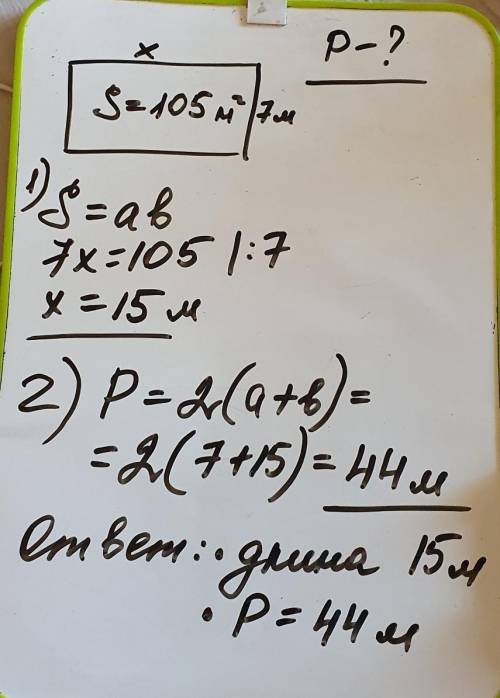 x
P-?
S=105м² 7м
1) S=ab
7x=105 |:7
x=15м
2) P=2(a+b)=
=2(7+15)=44м
Ответ:• длина 15м
• P=44м